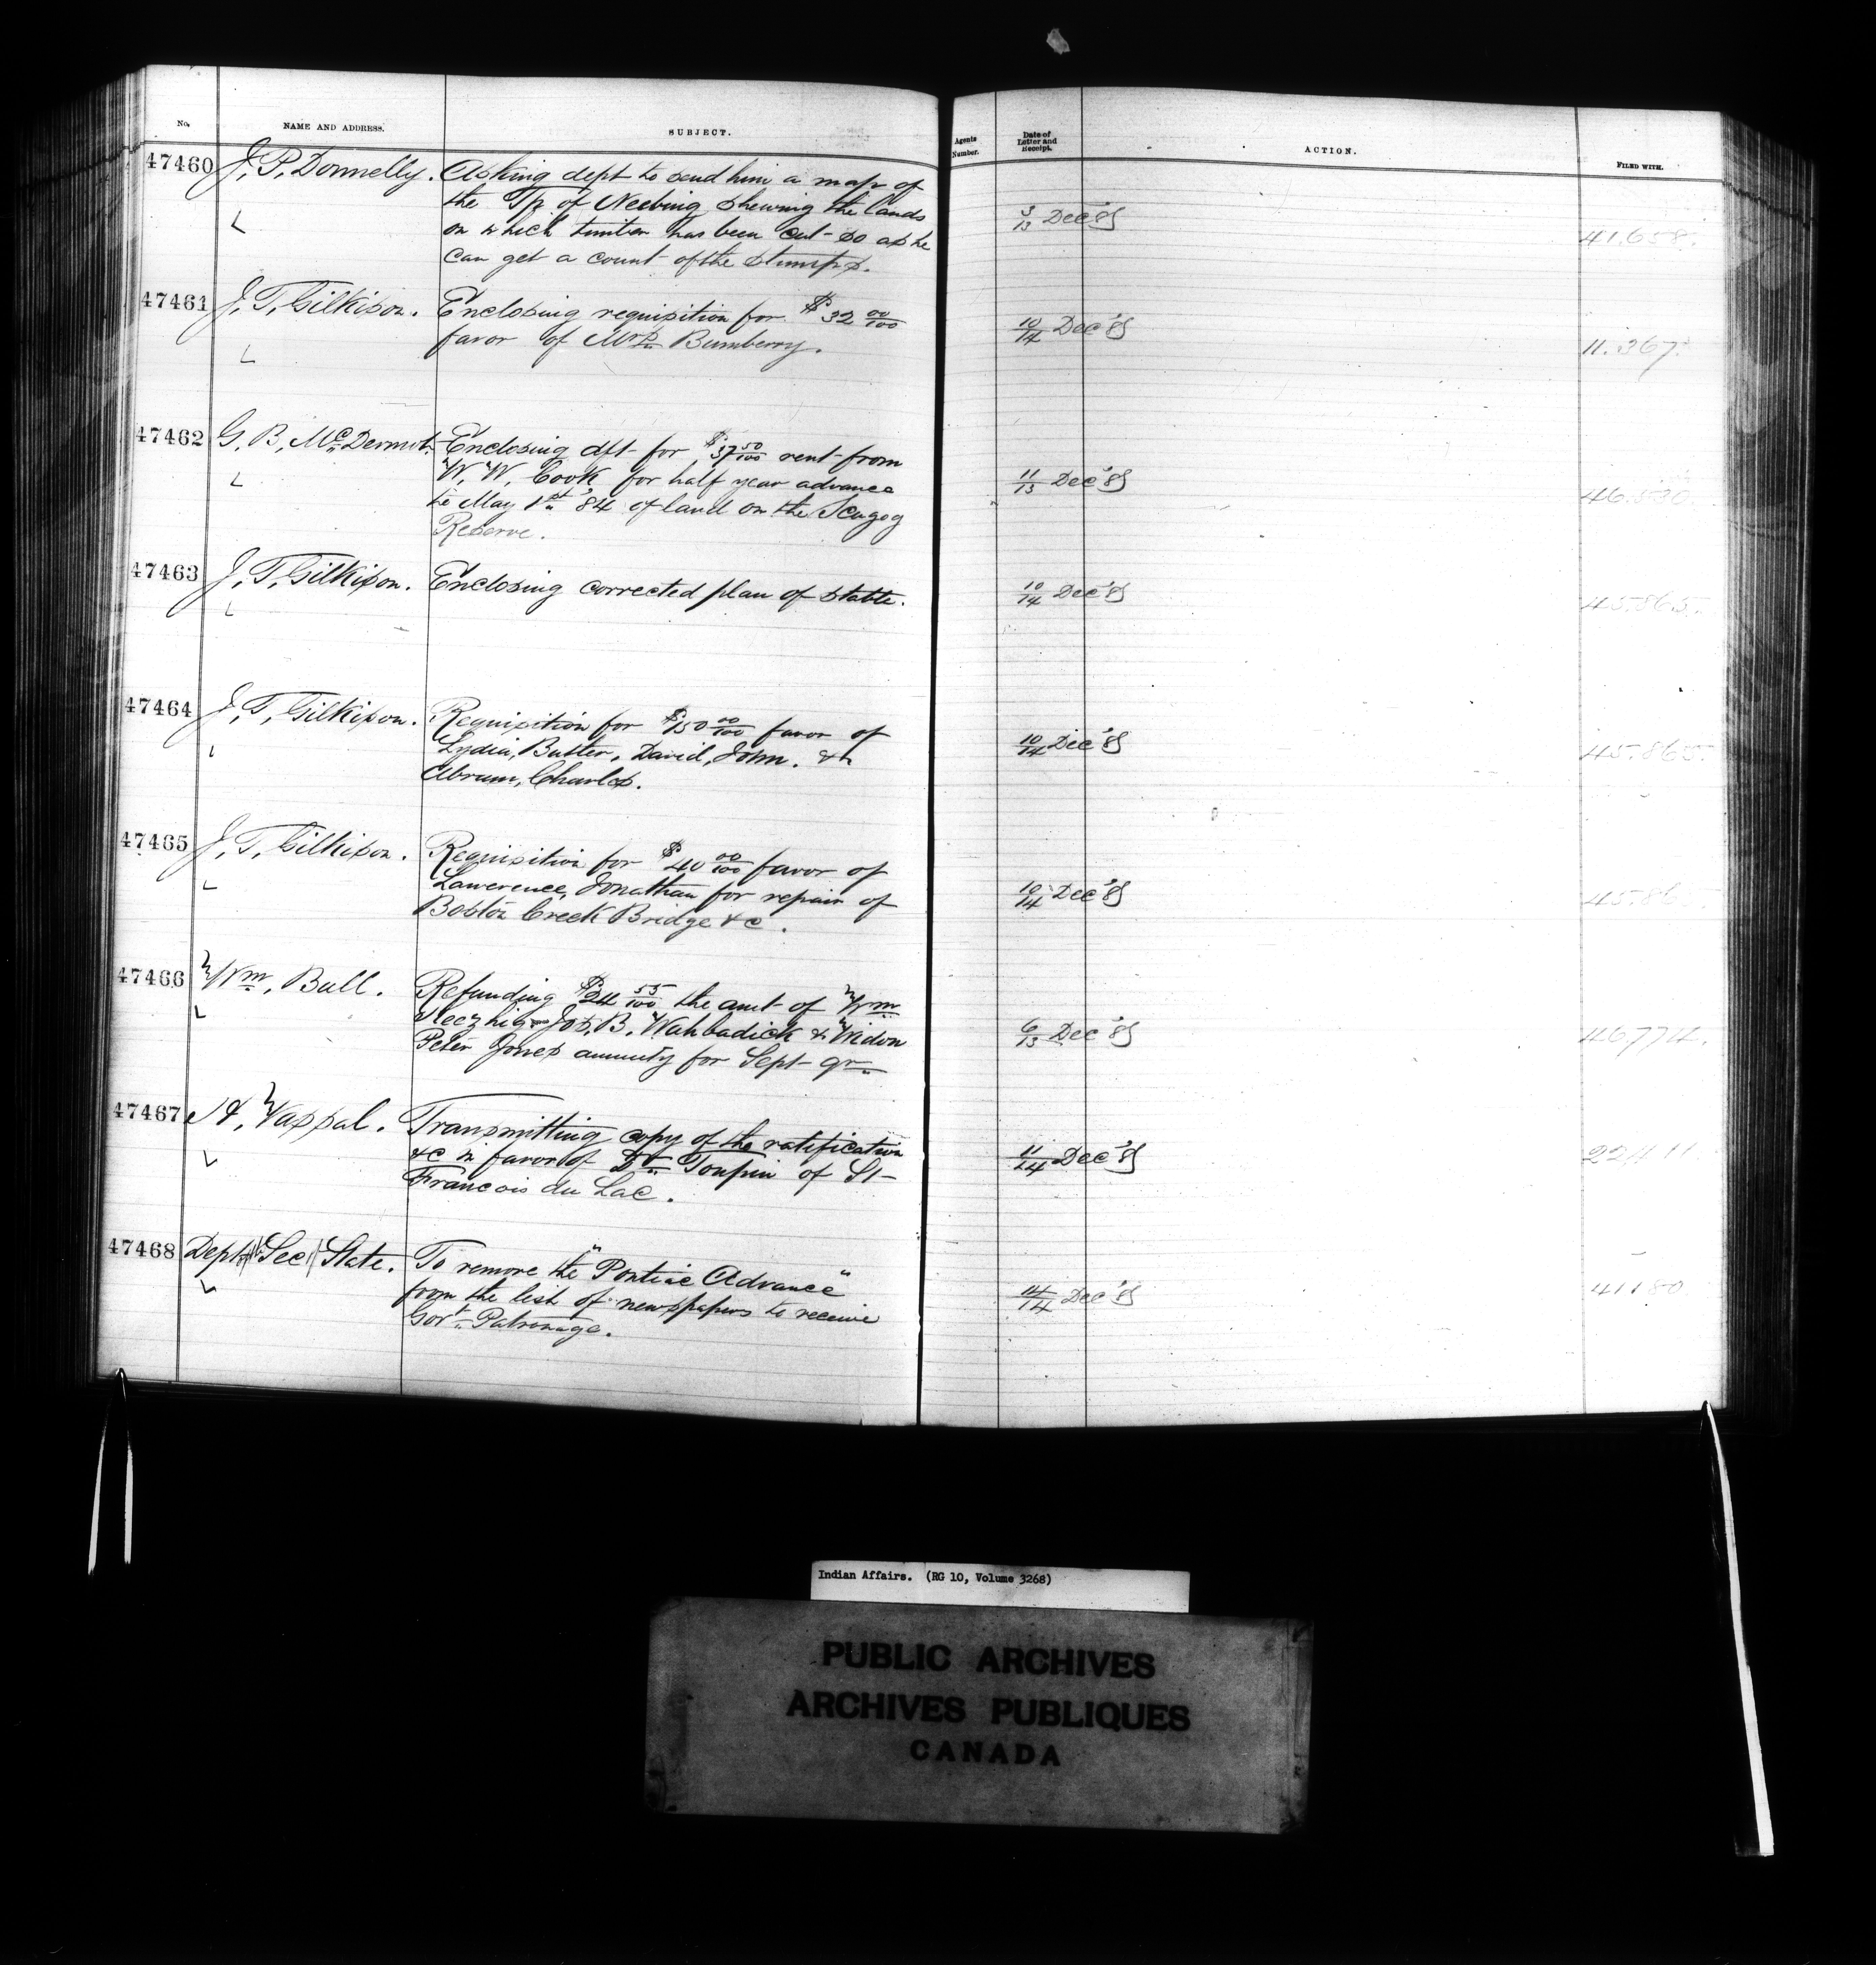 No. NAME AND ADDRESS. SUBJECT. Agents Number. Date of Letter and Receipt. ACTION. FILED WITH.
47460 J. P. Donnelly. Asking dept to send him a map of
the Tp of Neebing shewing the lands
on which timber has been cut so as he
can get a count of the stumps.
3/13 Dec '83 41.658.
47461 J. T. Gilkison. Enclosing requisition for $32 00/100
favor of Mrs Bumberry.
10/14 Dec '83 11.367.
47462 G. B. McDermot. Enclosing dft for $37 50/100 rent from
W. W. Cook for half year advance
to May 1st '84 of land on the Scugog
Reserve.
11/13 Dec '83
47463 J. T. Gilkison. Enclosing corrected plan of stable.
10/14 Dec '83 45.865.
47464 J. T. Gilkison. Requisition for $150 00/100 favor of
Lydia, Butler, David, John. &
Abram, Charles.
10/14 Dec '83 45.865.
47465 J. T. Gilkison. Requisition for $40 00/100 favor of
Lawerence, Jonathan for repair of
Boston Creek Bridge &c.
10/14 Dec '83 45.865
47466 Wm. Bull. Refunding $24 55/100 the amt of Wm
Jos. B. Wahbadick & Widow
Peter Jones annuity for Sept qr
6/13 Dec '83 46.774.
47467 H. Vassal. Transmitting copy of the ratification
&c in favor of Dr Toupin of St
Francois du Lac.
11/14 Dec '83 22411.
47468 Dept Sec State. To remove the "Pontiac Advance"
from the list of newspapers to receive
Govt Patronage.
14/14 Dec '83 41180
Indian Affairs. (RG 10, Volume 3268)
PUBLIC ARCHIVES
ARCHIVES PUBLIQUES
CANADA